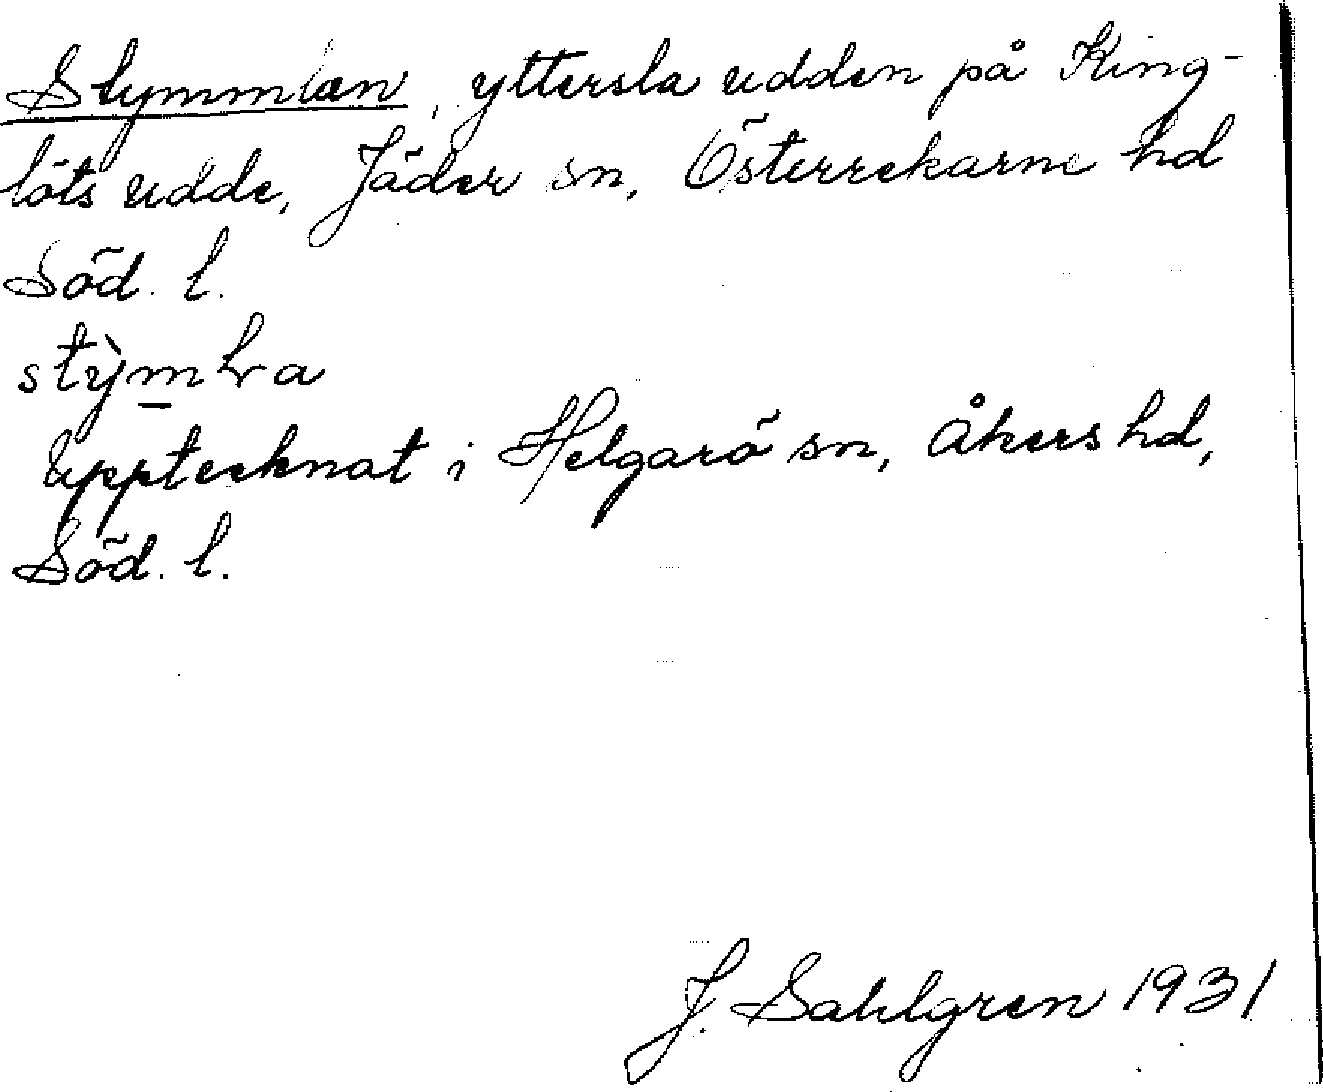 Stymmlan, yttersta udden på King-
löts udde, Jäder sn, Österrekarne hd
Söd. l.
stỳm̲lra
Upptecknat i Helgarö sn, Åkers hd,
Söd. l.
J. Sahlgren 1931